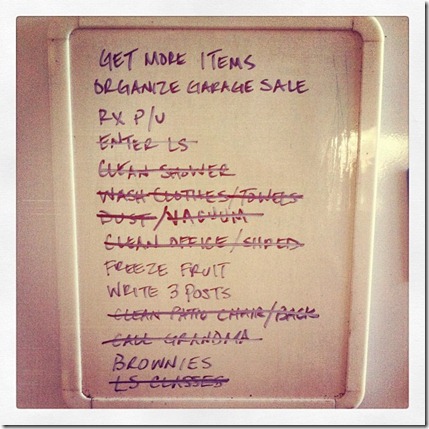 GET MORE ITEMS
ORGANIZE GARAGE SALE
RX P/U
ENTER LS
CLEAN SHOWER
WASH CLOTHES/TOWELS
DUST/VACUUM
CLEAN OFFICE/SHRED
FREEZE FRUIT
WRITE 3 POSTS
CLEAN PATIO CHAIR/BACK
CALL GRANDMA
BROWNIES
LS CLASSES